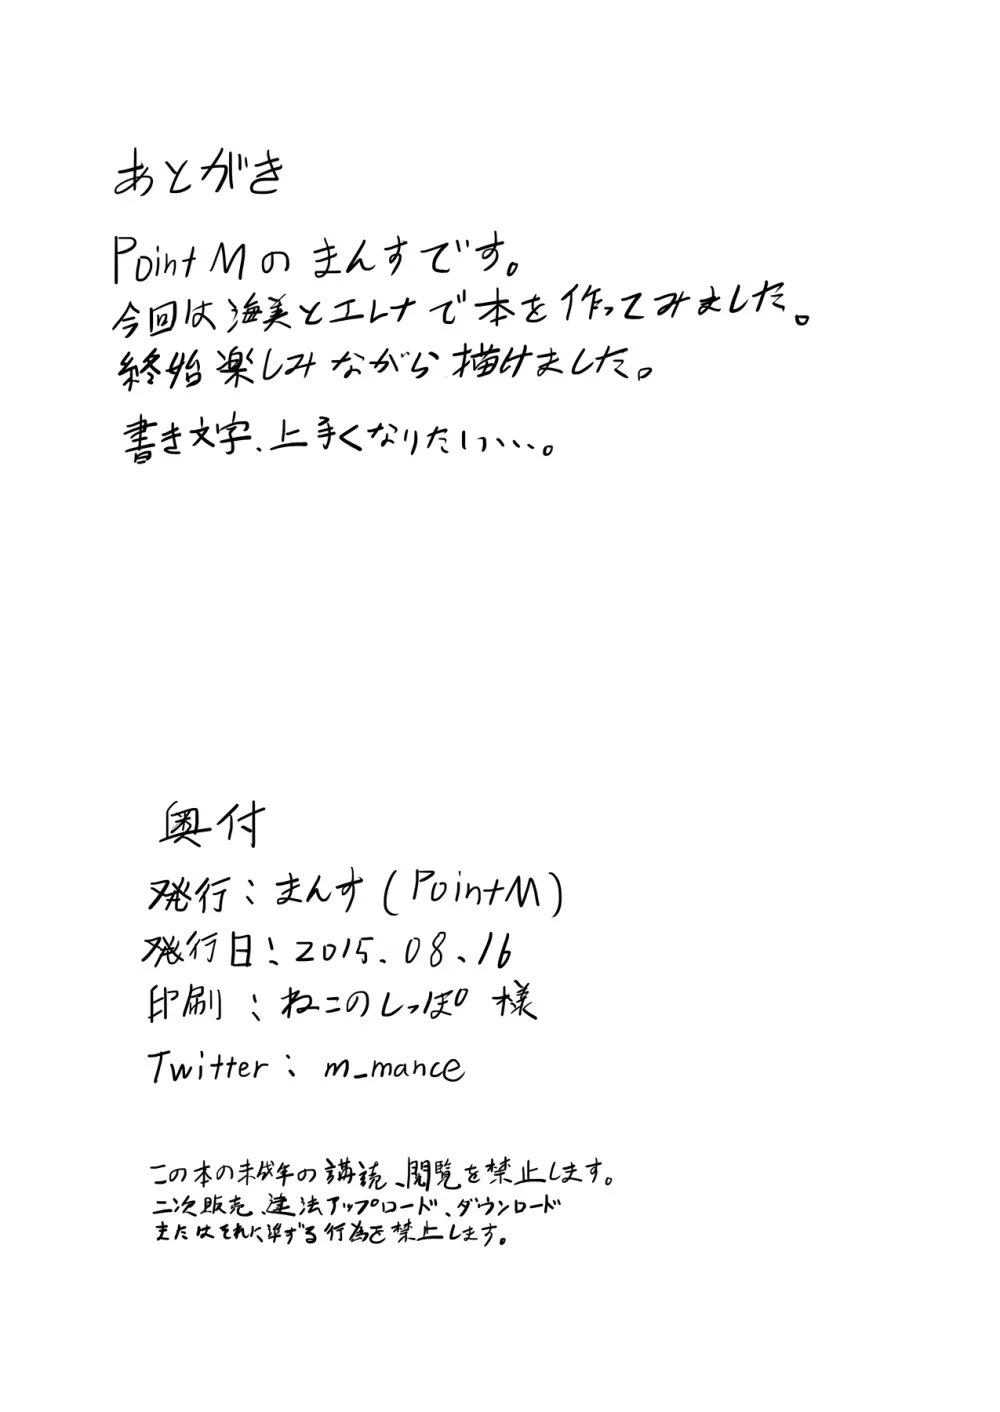 あとがき
Point M の まんすです。
今回は海美とエレナで本を作ってみました。
終始楽しみながら描けました。
書き文字、上手くなりたい、、、。
奥付
発行：まんす(PointM)
発行日：2015.08.16
印刷：ねこのしっぽ 様
Twitter：m_mance
この本の未成年の講読、閲覧を禁止します。
二次販売、違法アップロード、ダウンロード
またはそれに準ずる行為を禁止します。